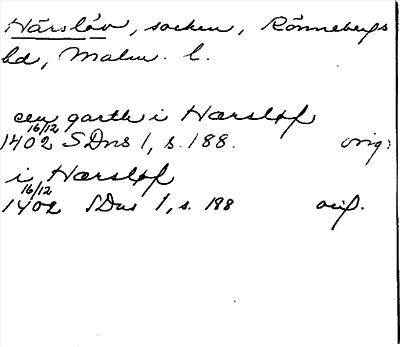 Härslöv, socken, Rönnebergs
hd, Malm. l.
een garth i Hærsløf
16/12
1402 SDns 1, s. 188. orig.
i Hærsløf
16/12
1402 SDns 1, s. 188 orig.